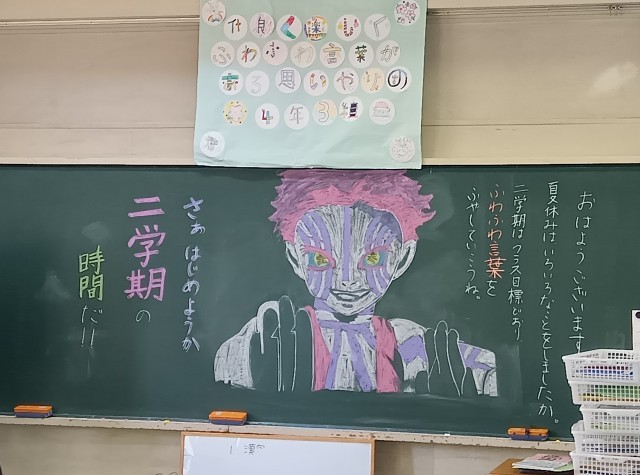 仲良く楽しく
ふわふわ言葉が
ある思いやりの
4年3組
おはようございます
夏休みはいろいろなことをしましたか。
二学期はクラス目標どおり
ふわふわ言葉を
ふやしていこうね。
さぁはじめようか
二学期の
時間だ!!
1 漢字